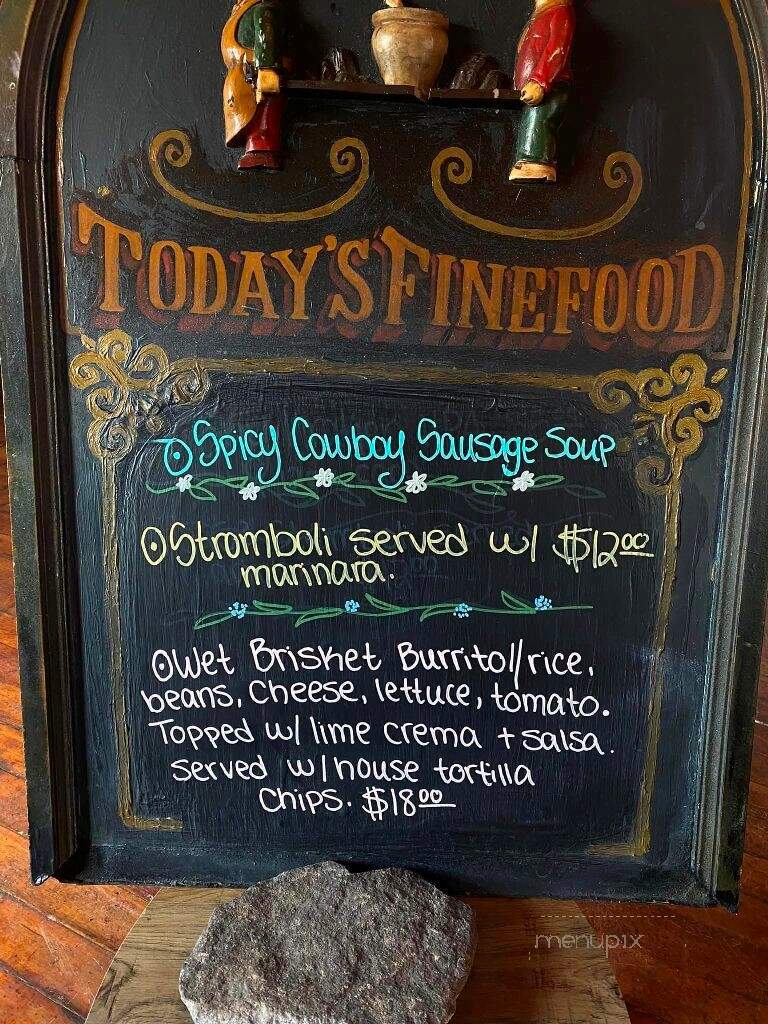 TODAY'S FINEFOOD
Spicy Cowboy Sausage Soup
Stromboli served w/ $12.00
marinara.
Wet Brisket Burrito//rice,
beans, cheese, lettuce, tomato.
Topped w/ lime crema + salsa.
served w/ house tortilla
chips. $18.00
menupix